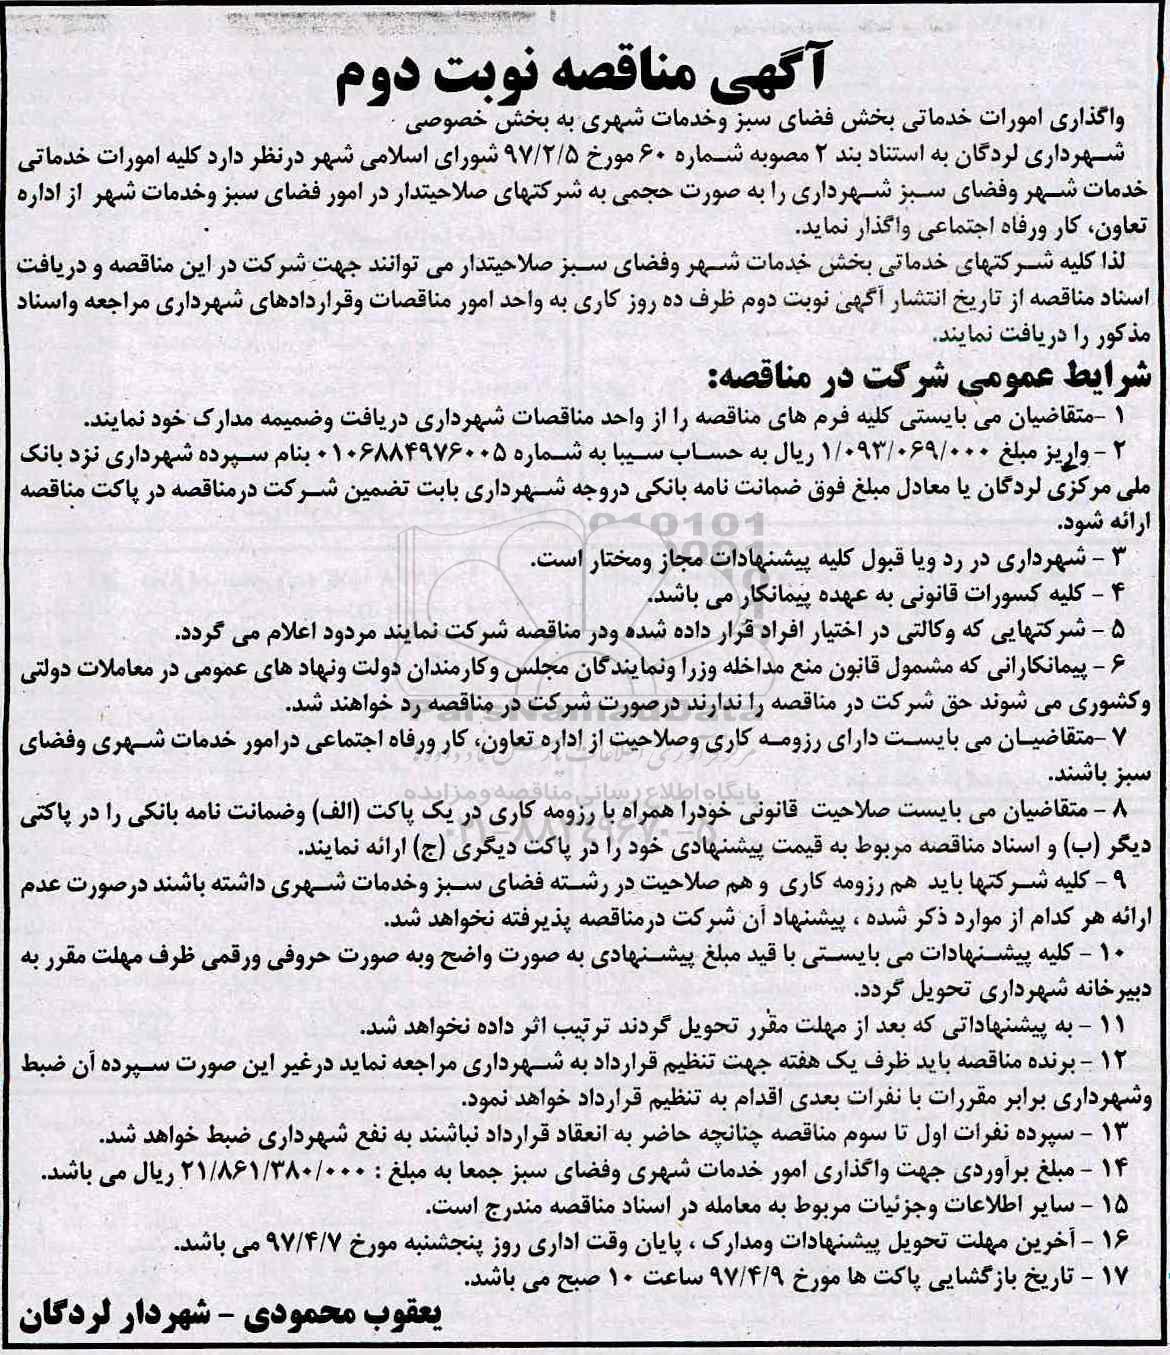 آگهی مناقصه نوبت دوم
واگذاری امورات خدماتی بخش فضای سبز وخدمات شهری به بخش خصوصی
شهرداری لردگان به استناد بند ۲ مصوبه شماره ۶۰ مورخ ۹۷/۲/۵ شورای اسلامی شهر درنظر دارد کلیه امورات خدماتی
خدمات شهر وفضای سبز شهرداری را به صورت حجمی به شرکتهای صلاحیتدار در امور فضای سبز وخدمات شهر از اداره
تعاون، کار ورفاه اجتماعی واگذار نماید.
لذا کلیه شرکتهای خدماتی بخش خدمات شهر وفضای سبز صلاحیتدار می توانند جهت شرکت در این مناقصه و دریافت
اسناد مناقصه از تاریخ انتشار آگهی نوبت دوم ظرف ده روز کاری به واحد امور مناقصات وقراردادهای شهرداری مراجعه واسناد
مذکور را دریافت نمایند.
شرایط عمومی شرکت در مناقصه:
۱ -متقاضیان می بایستی کلیه فرم های مناقصه را از واحد مناقصات شهرداری دریافت وضمیمه مدارک خود نمایند.
۲ - واریز مبلغ ۱/۰۹۳/۰۶۹/۰۰۰ ریال به حساب سیبا به شماره ۰۱۰۶۸۸۴۹۷۶۰۰۵ بنام سپرده شهرداری نزد بانک
ملی مرکزی لردگان یا معادل مبلغ فوق ضمانت نامه بانکی دروجه شهرداری بابت تضمین شرکت درمناقصه در پاکت مناقصه
ارائه شود.
۳ - شهرداری در رد ویا قبول کلیه پیشنهادات مجاز ومختار است.
۴ - کلیه کسورات قانونی به عهده پیمانکار می باشد.
۵ - شرکتهایی که وکالتی در اختیار افراد قرار داده شده ودر مناقصه شرکت نمایند مردود اعلام می گردد.
۶ - پیمانکارانی که مشمول قانون منع مداخله وزرا ونمایندگان مجلس وکارمندان دولت ونهاد های عمومی در معاملات دولتی
وکشوری می شوند حق شرکت در مناقصه را ندارند درصورت شرکت در مناقصه رد خواهند شد.
ParsNamadData
۷ -متقاضیان می بایست دارای رزومه کاری وصلاحیت از اداره تعاون، کار ورفاه اجتماعی درامور خدمات شهری وفضای
سبز باشند.
پایگاه اطلاع رسانی مناقصه و مزایده
۸ - متقاضیان می بایست صلاحیت قانونی خودرا همراه با رزومه کاری در یک پاکت (الف) وضمانت نامه بانکی را در پاکتی
۰۲۱-۸۸۳۴۹۶۷۰-۵
دیگر (ب) و اسناد مناقصه مربوط به قیمت پیشنهادی خود را در پاکت دیگری (ج) ارائه نمایند.
۹ - کلیه شرکتها باید هم رزومه کاری و هم صلاحیت در رشته فضای سبز وخدمات شهری داشته باشند درصورت عدم
ارائه هر کدام از موارد ذکر شده ، پیشنهاد آن شرکت درمناقصه پذیرفته نخواهد شد.
۱۰ - کلیه پیشنهادات می بایستی با قید مبلغ پیشنهادی به صورت واضح وبه صورت حروفی ورقمی ظرف مهلت مقرر به
دبیرخانه شهرداری تحویل گردد.
۱۱ - به پیشنهاداتی که بعد از مهلت مقرر تحویل گردند ترتیب اثر داده نخواهد شد.
۱۲ - برنده مناقصه باید ظرف یک هفته جهت تنظیم قرارداد به شهرداری مراجعه نماید درغیر این صورت سپرده آن ضبط
وشهرداری برابر مقررات با نفرات بعدی اقدام به تنظیم قرارداد خواهد نمود.
۱۳ - سپرده نفرات اول تا سوم مناقصه چنانچه حاضر به انعقاد قرارداد نباشند به نفع شهرداری ضبط خواهد شد.
۱۴ - مبلغ برآوردی جهت واگذاری امور خدمات شهری وفضای سبز جمعا به مبلغ : ۲۱/۸۶۱/۳۸۰/۰۰۰ ریال می باشد.
۱۵ - سایر اطلاعات وجزئیات مربوط به معامله در اسناد مناقصه مندرج است.
۱۶ - آخرین مهلت تحویل پیشنهادات ومدارک ، پایان وقت اداری روز پنجشنبه مورخ ۹۷/۴/۷ می باشد.
۱۷ - تاریخ بازگشایی پاکت ها مورخ ۹۷/۴/۹ ساعت ۱۰ صبح می باشد.
یعقوب محمودی - شهردار لردگان